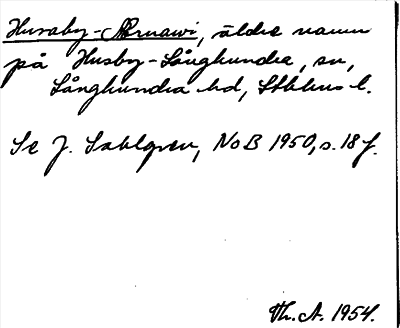 Husaby-Ærnawi, äldre namn
på Husby-Långhundra, sn,
Långhundra hd, Sthlms l.
Se J. Sahlgren, NoB 1950, s. 18 f.
Th. A. 1954.